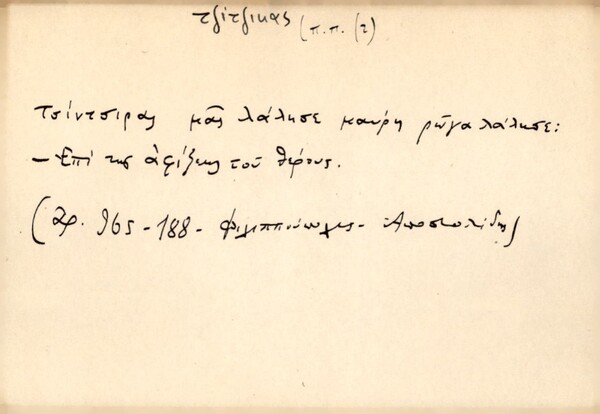 τζίτζικας (π.π. (τ)
Τσίντσιρας μᾶς λάλησε μαύρη ρῶγα λάλησε:
– Ἐπὶ τῆς ἀφίξεως τοῦ θέρους.
(Χφ. 965 - 188 - Φιλιππούπολις - Ἀποστολίδης)